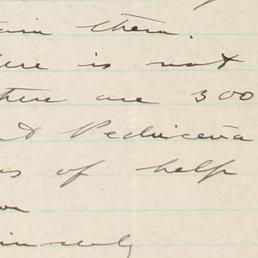 ain them.
ere is not
there are 300
d Pedriceña
s of help
on
incerely